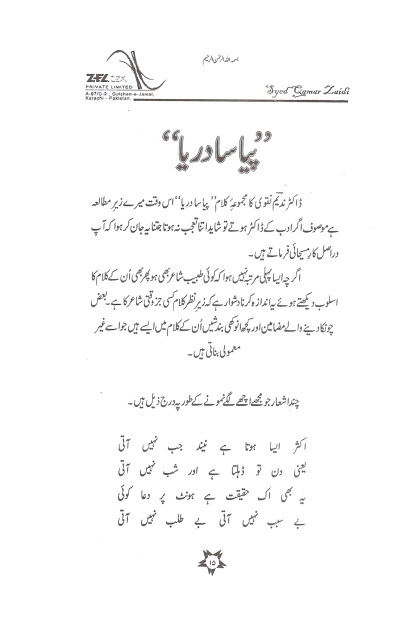 بسم اللہ الرحمٰن الرحیم
ZEL TEX
PRIVATE LIMITED
A-97/C-9, Gulshan-e-Jamal,
Karachi - Pakistan.
Syed Qamar Zaidi
”پیاسا دریا“
ڈاکٹر ندیم نقوی کا مجموعہ کلام ”پیاسا دریا“ اس وقت میرے زیرِ مطالعہ
ہے موصوف اگر ادب کے ڈاکٹر ہوتے تو شاید اتنا تعجب نہ ہوتا جتنا یہ جان کر ہوا کہ آپ
دراصل کارِ مسیحائی فرماتے ہیں۔
اگرچہ ایسا پہلی مرتبہ نہیں ہوا کہ کوئی طبیب شاعر بھی ہو پھر بھی اُن کے کلام کا
اسلوب دیکھتے ہوئے یہ اندازہ کرنا دشوار ہے کہ زیرِ نظر کلام کسی جزوقتی شاعر کا ہے۔ بعض
چونکا دینے والے مضامین اور کچھ انوکھی بندشیں اُن کے کلام میں ایسے ہیں جو اسے غیر
معمولی بناتی ہیں۔
چند اشعار جو مجھے اچھے لگے نمونے کے طور پہ درج ذیل ہیں۔
اکثر ایسا ہوتا ہے نیند جب نہیں آتی
یعنی دن تو ڈہلتا ہے اور شب نہیں آتی
یہ بھی اک حقیقت ہے ہونٹ پر دعا کوئی
بے سبب نہیں آتی بے طلب نہیں آتی
۱۵